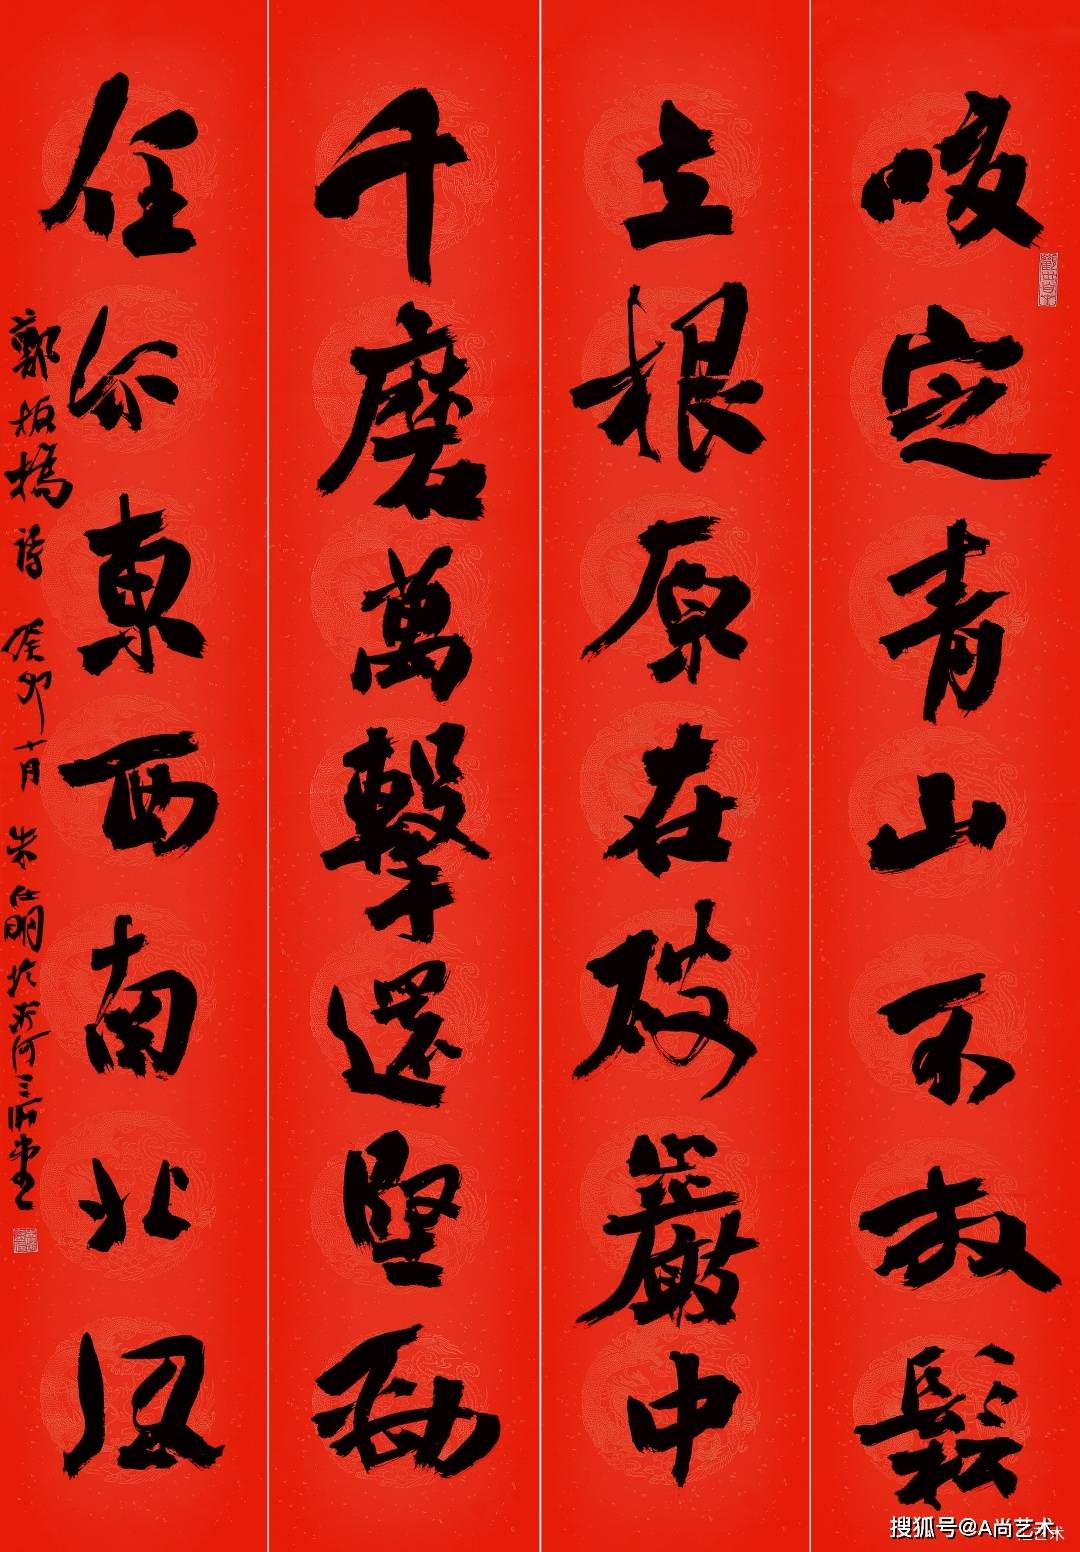 咬定青山不放鬆
立根原在破巖中
千磨萬擊還堅勁
任尔東西南北風
鄭板橋詩 癸卯十月 朱仕明於河三堂
搜狐号@A尚艺术